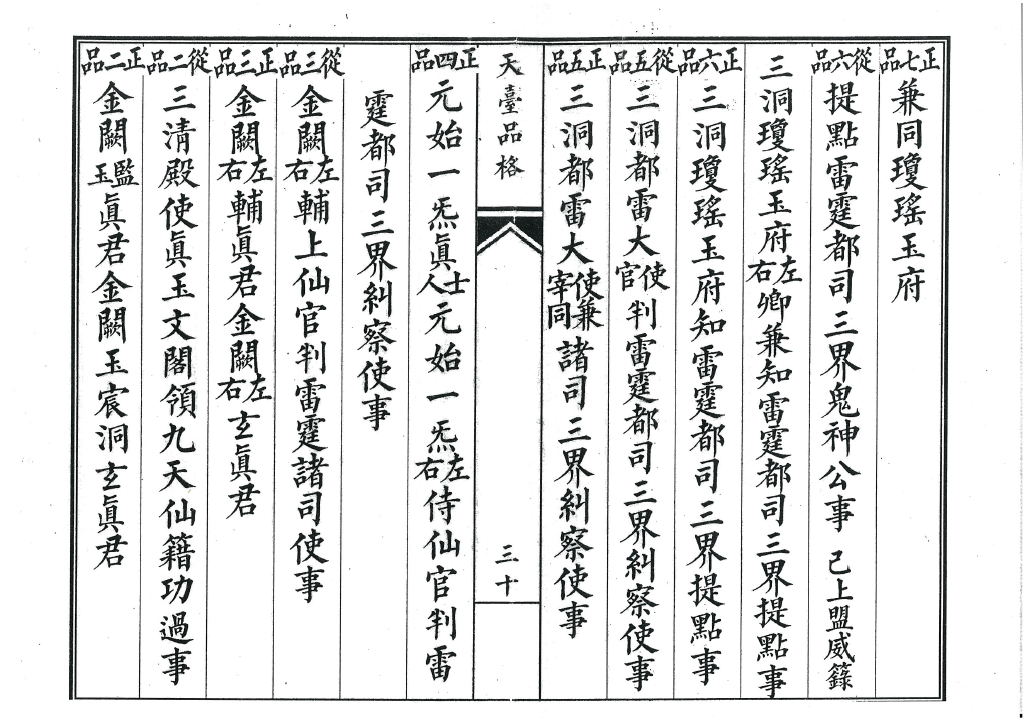 正七品 兼同瓊瑤玉府
從六品 提點雷霆都司三界鬼神公事 已上盟威籙
三洞瓊瑤玉府左右卿兼知雷霆都司三界提點事
正六品 三洞瓊瑤玉府知雷霆都司三界提點事
從五品 三洞都雷大使官判雷霆都司三界糾察使事
正五品 三洞都雷大使兼宰同諸司三界糾察使事
天臺品格 三十
正四品 元始一炁眞士人元始一炁左右侍仙官判雷
霆都司三界糾察使事
從三品 金闕左右輔上仙官判雷霆諸司使事
正三品 金闕左右輔眞君金闕左右玄眞君
從二品 三清殿使眞玉文閣領九天仙籍功過事
正二品 金闕玉鑑眞君金闕玉宸洞玄眞君